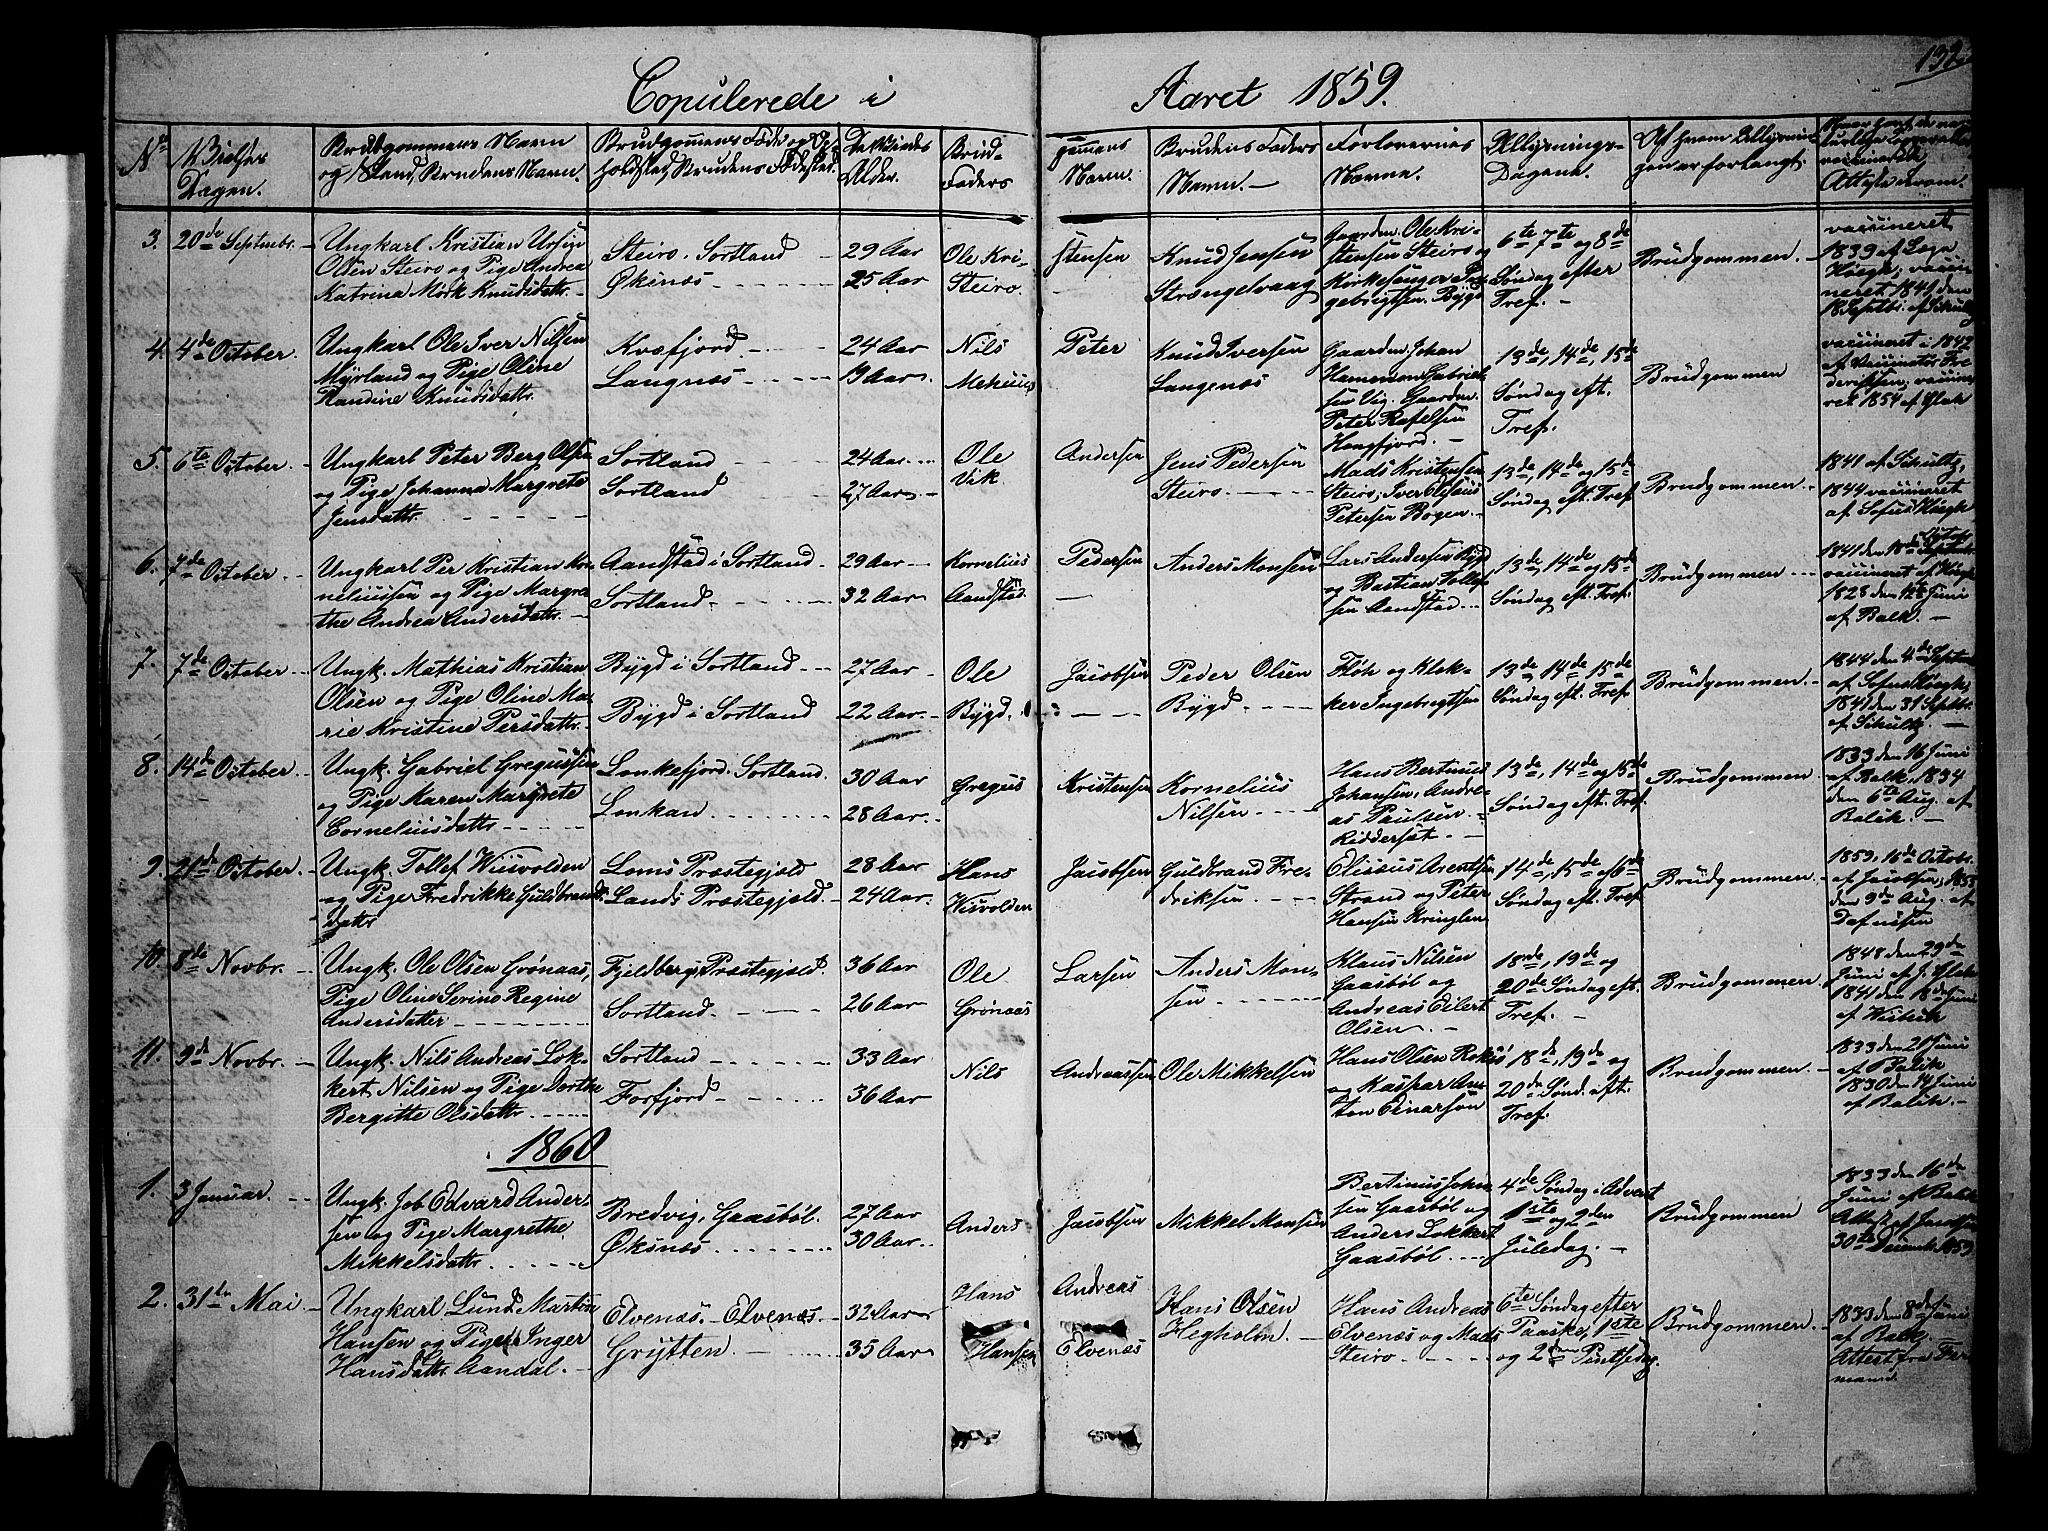 132
Copulerede i Aaret 1859.
No
Vielses Dagen.
Brudgommens Navn og Stand, Brudens Navn.
Brudgommens Føde og Opholdsted, Brudens Fødested.
De Viedes Alder.
Brudgommens Faders Navn.
Brudens Faders Navn. —
Forlovernes Navne.
Tillysnings-Dagene.
Af hvem Tillysningen er forlangt.
Attest derom.
3. 20de Septembr. —
Ungkarl Kristian Ursin
Olsen Steiro og Pige Andrea
Katrina Mørk Knudsdatr. —
Steiro. Sortland —
Øksnæs — — —
29 Aar
25 Aar
Ole Kristensen
Steiro. —
Knud Jensen
Strengelvaag
Gaardm. Ole Kri-
stensen Steiro og
Kirkesanger In-
gebrigtsen. Bygd
6te 7te og 8de
Søndag efter
Tref. —
Brudgommen. —
vaccineret
1839 af
Høegh, vacci-
neret 1841 den
18 Septbr. af Schultz
4. 4de October. —
Ungkarl Ole Iver Nilsen
Myrland og Pige Oline
Handine Knudsdatr.
Kvæfjord — — —
Langnæs — — —
24 Aar
19 Aar.
Nils Peter
Mehuus
Knud Iversen
Langenæs
Gaardm. Johan
Hamenson Gabriel-
sen Vig. Gaardm.
Peter Rafelsen
Hognfjord. —
13de, 14de, 15de
Søndag eft.
Tref.
Brudgommen
vaccineret i 1842
af Vaccinatør Fre-
deriksen; vaccine-
ret 1854 af Flak
5. 6te October. —
Ungkarl Peter Berg Olsen
og Pige Johanna Margrete
Jensdatr. — — —
Sortland — — —
Sortland — — —
24 Aar. —
27 Aar. —
Ole Andersen
Vik
Jens Pedersen
Steiro. — — —
Mads Kristensen
Steiro; Iver Elisæus
Petersen Bogen. —
13de, 14de og 15de
Søndag eft. Tref.
Brudgommen. —
1841 af Schultz,
1844 vaccineret
af Sofus Høegh
6. 7de October —
Ungkarl Per Kristian Kor-
neliussen og Pige Margre-
the Andrea Andersdatr. —
Aandstad i Sortland. —
Sortland. — — —
29 Aar —
32 Aar —
Kornelius Pedersen
Aandstad —
Anders Monsen
Lars Andersen Bygd
og Bastian Tollef-
sen Aandstad. —
13de, 14de og 15de
Søndag eft. Tref.
Brudgommen —
1841 den 18de Septbr.
vaccineret af Høegh
1828 den 12te Juni
af Balk. —
7. 7de October —
Ungk. Mathias Kristian
Olsen og Pige Oline Ma-
rie Kristine Persdatr. —
Bygd i Sortland. —
Bygd i Sortland
27 Aar —
22 Aar. —
Ole Jacobsen
Bygd. — — —
Peder Olsen
Bygd — — —
Fløh og Klok-
ker Ingebrigtsen
13de, 14de 15de
Søndag eft. Tref.
Brudgommen. —
1844 den 4de Septbr.
af Sofus Høegh,
1841 den 31 Septbr.
af Schultz. —
8. 14de October —
Ungk. Gabriel Gregussen
og Pige Maren Margrete
Corneliusdatr — — —
Lonkefjord. Sortland.
Lonkan. — — —
30 Aar
28 Aar. —
Gregus Kristensen
Kornelius
Nilsen — — —
Hans Bertinus
Johansen, Andre-
as Paulsen
Riddersæt. —
13de, 14de og 15de
Søndag eft. Tref.
Brudgommen —
1833 den 16 Juni
af Balk, 1834
den 6te Aug. af
Balk. —
9. 21de October. —
Ungk. Tollef Wisvolden
og Pige Fredrikke Guldbrands-
datr
Loms Præstegjeld
Lands Præstegjeld. —
28 Aar
24 Aar. —
Hans Jacobsen
Wisvolden
Guldbrand Fre-
driksen. — — —
Elisæus Arentsen
Strand og Peter
Hansen Kringlen
14de, 15de og 16de
Søndag eft. Tref
Brudgommen. —
1859. 16de Octobr.
af Jacobsen, 1853
den 9de Aug. af
10. 8de Novbr. —
Ungk. Ole Olsen Grønaas,
Pige Oline Serine Regine
Andersdatter — — —
Fjeldbergs Præstegjeld.
Sortland. — — —
36 Aar
26 Aar
Ole Larsen
Grønaas
Anders Mon-
sen — — —
Klaus Nilsen
Gaasbøl og
Andreas Eilert
Olsen. —
18de, 19de og
20de Søndag eft.
Tref. —
Brudgommen —
1848 den 29de
Juni af J. Flak
1841 den 18de Juni
af
11. 9de Novbr. —
Ungk. Nils Andreas Lok-
kert Nilsen og Pige Dorthe
Bergitte Olsdatr. — — —
Sortland — — —
Forfjord — — —
33 Aar
36 Aar
Nils Andreassen
Ole Mikkelsen
Hans Olsen Roksø
og Kaspar An-
ton Einarsen
18de, 19de og
20de Sønd. eft.
Tref.
Brudgommen. —
1833 den 21 Juni
af Balk
1830 den 14 Juni
af Balk. —
1860
1. 3 Januar. —
Ungk. Job Edvard Ander-
sen og Pige Margrethe
Mikkelsdatr. — — —
Bredvig, Gaasbøl.
Øksnæs. — — —
27 Aar
30 Aar. —
Anders Jacobsen
Mikkel Monsen
Bertinus John-
sen Gaasbøl og
Anders Lokkert
Gaasbøl. —
4de Søndag i Advent
1ste og 2den
Juledag. —
Brudgommen
1833 den 16de
Juni af Balk
Attest af Jacobsen
30te Decemb. 1859.
2. 31te Mai —
Ungkarl Lund Martin
Hansen og Pige Inger
Hansdatr. Aandal. —
Elvenæs. Elvenæs. —
Grytten. — — —
32 Aar —
35 Aar —
Hans Andreas
Hansen Elvenæs
Hans Olsen
Hegholm. —
Hans Andreas
Elvenæs og Mads
Steiro. — — —
6te Søndag efter
Paaske, 1ste
og 2den Pintsedag.
Brudgommen. —
1833 den 8de Juni
af Balk. —
Attest fra